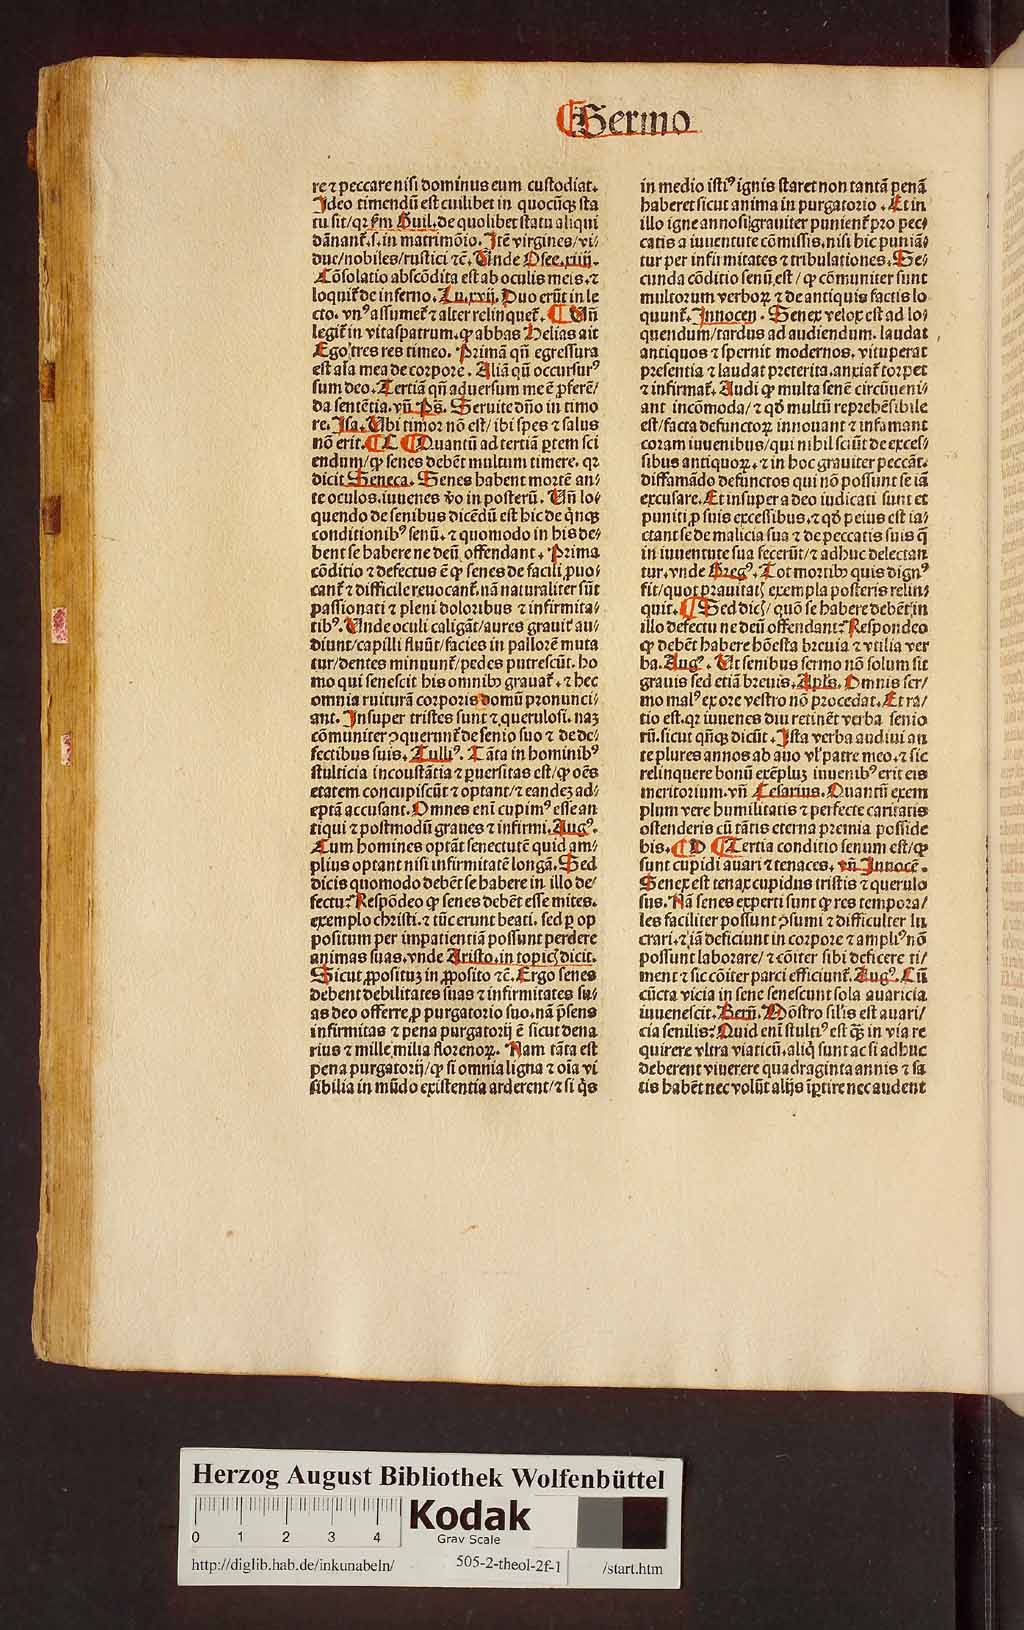 Sermo
re ⁊ peccare nisi dominus eum custodiat.
Ideo timendū est cuilibet in quocūqꝫ sta
tu sit/qꝛ ẜm Guil. de quolibet statu aliqui
dānant᷑.s. in matrimōio. Itē virgines/vi⸗
due/nobiles/rustici ⁊c̄. Unde Osee.xiiij.
Cōsolatio abscōdita est ab oculis meis.⁊
loquit᷑ de inferno. Lu.xvij. Duo erūt in le
cto. vnꝰ assumet᷑ ⁊ alter relinquet᷑. Un̄
legit᷑ in vitaspatrum. ꝙ abbas Helias ait
Ego tres res timeo. Primā qn̄ egressura
est aīa mea de corpore. Aliā qn̄ occursurꝰ
sum deo. Tertiā qn̄ aduersum me ē ꝓferē/
da sentētia. vn̄ Ps̄. Seruite dn̄o in timo
re. Isa. Ubi timor nō est/ibi spes ⁊ salus
nō erit. C Quantū ad tertiā ꝑtem sci
endum/ꝙ senes debēt multum timere. qꝛ
dicit Seneca. Senes habent mortē an⸗
te oculos. iuuenes ṽo in posterū. Un̄ lo⸗
quendo de senibus dicēdū est hic de q̇nqꝫ
conditionibꝰ senū.⁊ quomodo in his de⸗
bent se habere ne deū offendant. Prima
cōditio ⁊ defectus ē ꝙ senes de facili ꝓuo⸗
cant᷑ ⁊ difficile reuocant᷑. nā naturaliter sūt
passionati ⁊ pleni doloribus ⁊ infirmita⸗
tibꝰ. Unde oculi caligāt/aures grauit᷑ au⸗
diunt/capilli fluūt/facies in pallorē muta
tur/dentes minuunt᷑/pedes putrescūt. ho
mo qui senescit his omnibꝫ grauat᷑.⁊ hec
omnia ruiturā corporis domū pronunci⸗
ant. Insuper tristes sunt ⁊ querulosi. naꝫ
cōmuniter ꝯquerunt᷑ de senio suo ⁊ de de⸗
fectibus suis. Tulliꝰ. Tāta in hominibꝰ
stulticia incoustātia ⁊ ꝑuersitas est/ꝙ oēs
etatem concupiscūt ⁊ optant/⁊ eandeꝫ ad⸗
eptā accusant. Omnes enī cupimꝰ esse an
tiqui ⁊ postmodū graues ⁊ infirmi. Augꝰ.
Cum homines optāt senectutē quid am⸗
plius optant nisi infirmitatē longā. Sed
dicis quomodo debēt se habere in illo de/
fectu? Respōdeo ꝙ senes debēt esse mites.
exemplo christi.⁊ tūc erunt beati. sed ꝑ op
positum per impatientiā possunt perdere
animas suas. vnde Aristo. in topicꝭ dicit.
Sicut ꝓpositꝫ in ꝓposito ⁊c̄. Ergo senes
debent debilitates suas ⁊ infirmitates su⸗
as deo offerre ꝓ purgatorio suo. nā p̄sens
infirmitas ⁊ pena purgatorij ē sicut dena
rius ⁊ mille milia florenoꝝ. Nam tāta est
pena purgatorij/ꝙ si omnia ligna ⁊ oīa vi
sibilia in mūdo existentia arderent/⁊ si q̇s
in medio istiꝰ ignis staret non tantā penā
haberet sicut anima in purgatorio. Et in
illo igne annosi grauiter punient᷑ pro pec⸗
catis a iuuentute cōmissis. nisi hic puniā⸗
tur per infirmitates ⁊ tribulationes. Se⸗
cunda cōditio senū est/ꝙ cōmuniter sunt
multorum verboꝝ ⁊ de antiquis factis lo
quunt᷑. Innocen. Senex velox est ad lo⸗
quendum/tardus ad audiendum. laudat
antiquos ⁊ spernit modernos. vituperat
presentia ⁊ laudat preterita. anxiat᷑ torpet
⁊ infirmat᷑. Audi ꝙ multa senē circūueni⸗
ant incōmoda/⁊ qd̛ multū reprehēsibile
est/facta defunctoꝝ innouant ⁊ infamant
coram iuuenibus/qui nihil sciūt de exces⸗
sibus antiquoꝝ.⁊ in hoc grauiter peccāt.
diffamādo defunctos qui nō possunt se iā
excusare. Et insuper a deo iudicati sunt et
puniti ꝓ suis excessibus.⁊ qd̛ peius est ia⸗
ctant se de malicia sua ⁊ de peccatis suis q̄
in iuuentute sua fecerūt/⁊ adhuc delectan
tur. vnde Gregꝰ. Tot mortibꝫ quis dignꝰ
fit/quot prauitatꝭ exempla posteris relin⸗
quit. Sed dicꝭ/quō se habere debēt in
illo defectu ne deū offendant? Respondeo
ꝙ debēt habere hōesta breuia ⁊ vtilia ver
ba. Augꝰ. Ut senibus sermo nō solum sit
grauis sed etiā breuis. Apls. Omnis ser/
mo malꝰ ex ore vestro nō procedat. Et ra/
tio est. qꝛ iuuenes diu retinēt verba senio
rū. sicut qn̄qꝫ dicūt. Ista verba audiui an
te plures annos ab auo vl̛ patre meo.⁊ sic
relinquere bonū exēpluꝫ iuuenibꝰ erit eis
meritorium. vn̄ Cesarius. Quantū exem
plum vere humilitatis ⁊ perfecte caritatis
ostenderis cū tātis eterna premia posside
bis. D Tertia conditio senum est/ꝙ
sunt cupidi auari ⁊ tenaces. vn̄ Innocē.
Senex est tenax cupidus tristis ⁊ querulo
sus. Nā senes experti sunt ꝙ res tempora/
les faciliter possunt ꝯsumi ⁊ difficulter lu
crari.⁊ iā deficiunt in corpore ⁊ ampliꝰ nō
possunt laborare/⁊ cōiter sibi deficere ti/
ment ⁊ sic cōiter parci efficiunt᷑. Augꝰ. Cū
cūcta vicia in sene senescunt sola auaricia
iuuenescit. Bern̄. Mōstro sil̛is est auari/
cia senilis: Quid enī stultiꝰ est qꝫ̄ in via re
quirere vltra viaticū. aliq̇ sunt ac si adhuc
deberent viuere quadraginta annis ⁊ sa
tis habēt nec volūt alijs īꝑtire nec audent
Herzog August Bibliothek Wolfenbüttel
0 1 2 3 4
Kodak
Gray Scale
http://diglib.hab.de/inkunabeln/ 505-2-theol-2f-1 /start.htm